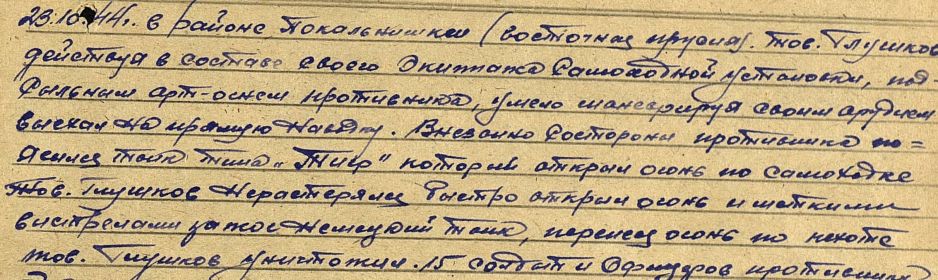 23.10.44г. в районе Покальнишкен (восточная пруссия). тов. Глушков
действуя в составе своего экиппажа самоходной установки, под-
сильным арт-огнем противника, умело маневрируя своим орудием
выехал на прямую наводку. Внезапно состороны противника по=
явился танк типа „Тигр" который открыл огонь по самоходке
тов. Глушков нерастерялся быстро открыл огонь и меткими
выстрелами зажог немецкий танк, перенеся огонь по пехоте
тов. Глушков уничтожил 15 солдат и офицеров противника